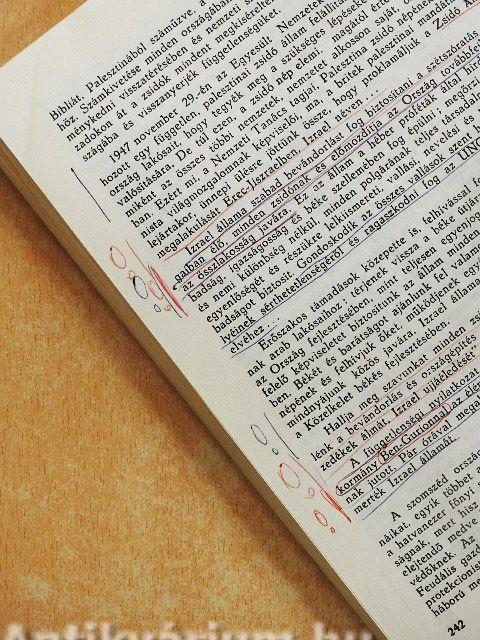 Bibliát. Palesztinából száműzve, a
höz. Száműzetése minden országában
ménykedni visszatérésében és nemzeti
zadokon át a zsidók mindent megkíséreltek
szágába és visszanyerjék függetlenségüket.
1947 november 29-én az Egyesült Nemzetek
hozott egy független, palesztinai zsidó állam felállítás
ország lakósait, hogy tegyék meg a szükséges lépéseket
valósítására. De túl ezen, a zsidó nép elemi, magától érte
miként az összes többi nemzetek, nemzetet alkosson saját,
ban. Ezért mi, a Nemzeti Tanács tagjai, Palesztina zsidó népének
nista világmozgalomnak képviselői, ma, a britek palesztinai mandátu
lejártakor, ünnepi ülésre jöttünk össze, hogy proklamáljuk a Zsidó
megalakulását Erec-Jiszraelben, Izrael néven.
Izrael állama szabad bevándorlást fog biztosítani a szétszórtság
gaiban élő minden zsidónak, s előmozdítja az Ország továbbfej
az összlakosság javára. Ez az állam a héber Próféták által hird
badság, igazságosság és béke szellemében fog épülni, megőrz
és nemi különbség nélkül, minden polgárának teljes társadal
egyenlőségét és részükre lelkiismereti, vallási, nevelési és
badságot biztosít. Gondoskodik az összes vallások szent
lyeinek sérthetetlenségéről és ragaszkodni fog az UN
elveihez.
Erőszakos támadások közepette is, felhívással f
nak arab lakosaihoz: térjenek vissza a béke útjár
az Ország fejlesztésében, mint teljesen egyenjog
felelő képviseletet biztosítunk az állam minden
ben. Békét és barátságot ajánlunk fel valame
népének és felhívjuk őket, működjenek egy
mindnyájunk közös javára. Izrael állama
a Közelkelet békés fejlesztésében.
Hallja meg szavunkat minden zsi
lénk a bevándorlás és országépítés
zedékek álmát, Izrael újjáéledését
A függetlenségi nyilatkozat
kormány Ben-Gurionnal az élén
nak jutott. Pár órával mega
merték Izrael államát.
A szomszéd orszá
náikat, egyik többet a
a hatvanezer főnyi
ságnak, mert hisz
elejtendő medve
védőknek. Az
Feudális gazd
protekcionist
háború me
242
Antikvárium.hu